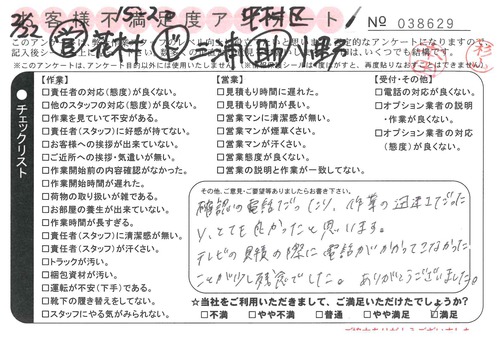 客様不満足度アンケート
№ 038629
【作業】
□責任者の対応(態度)が良くない。
□他のスタッフの対応(態度)が良くない。
□作業を見ていて不安がある。
□責任者(スタッフ)に好感が持てない。
□お客様への挨拶が出来ていない。
□ご近所への挨拶・気遣いが無い。
□作業開始前の内容確認がなかった。
□作業開始時間が遅れた。
□荷物の取り扱いが雑である。
□お部屋の養生が出来ていない。
□作業時間が長すぎる。
□責任者(スタッフ)に清潔感が無い。
□責任者(スタッフ)が汗くさい。
□トラックが汚い。
□梱包資材が汚い。
□運転が不安(下手)である。
□靴下の履き替えをしてない。
□スタッフにやる気がみられない。
【営業】
□見積もり時間に遅れた。
□見積もり時間が長い。
□営業マンに清潔感が無い。
□営業マンが煙草くさい。
□営業マンが汗くさい。
□営業態度が良くない。
□営業の説明と作業が一致してない。
【受付・その他】
□電話の対応が良くない。
□オプション業者の説明
・作業が良くない。
□オプション業者の対応
(態度)が良くない。
チェックリスト
その他、ご意見・ご要望等ありましたらお書き下さい。
確認の電話だったり、作業の迅速さだった
り、とても良かったと思います。
テレビの見積の際に電話がかかってこなかった
ことが少し残念でした。ありがとうございました。
☆当社をご利用いただきまして、ご満足いただけたでしょうか?
□不満 □やや不満 □普通 □やや満足 ☑満足